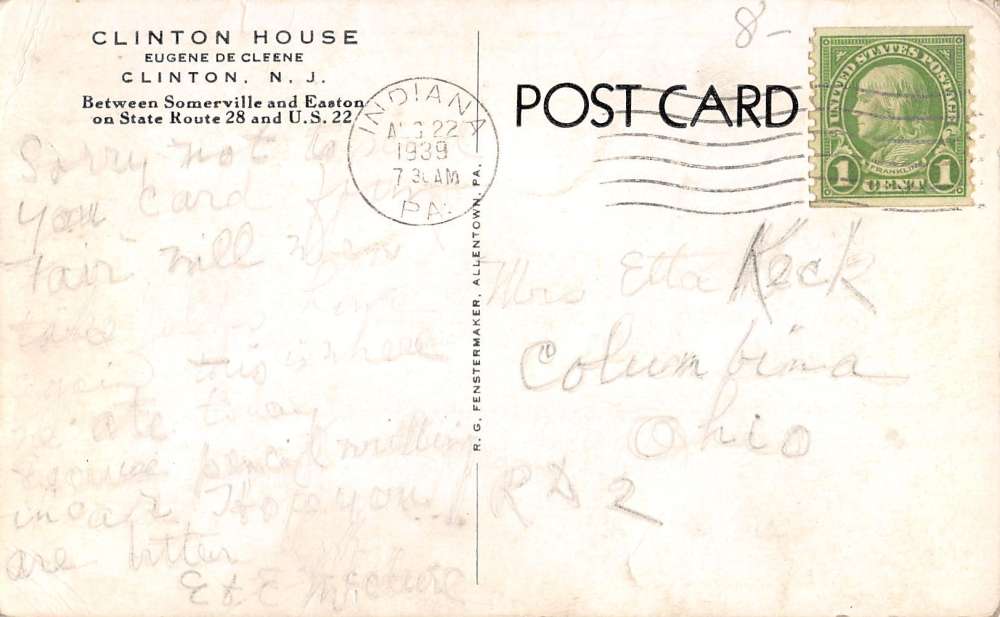 CLINTON HOUSE
EUGENE DE CLEENE
CLINTON, N. J.
Between Somerville and Easton
on State Route 28 and U.S. 22
INDIANA
AUG 22
1939
7 30 AM
PA.
POST CARD
8-
UNITED STATES POSTAGE
FRANKLIN
1 CENT 1
R. G. FENSTERMAKER, ALLENTOWN, PA.
Sorry not to
you card from
fair will when
take
this is where
we ate today
excuse pencil writing
in car Hope you
are better
E & E McClure
Mrs Etta Keck
Columbina
Ohio
RD 2